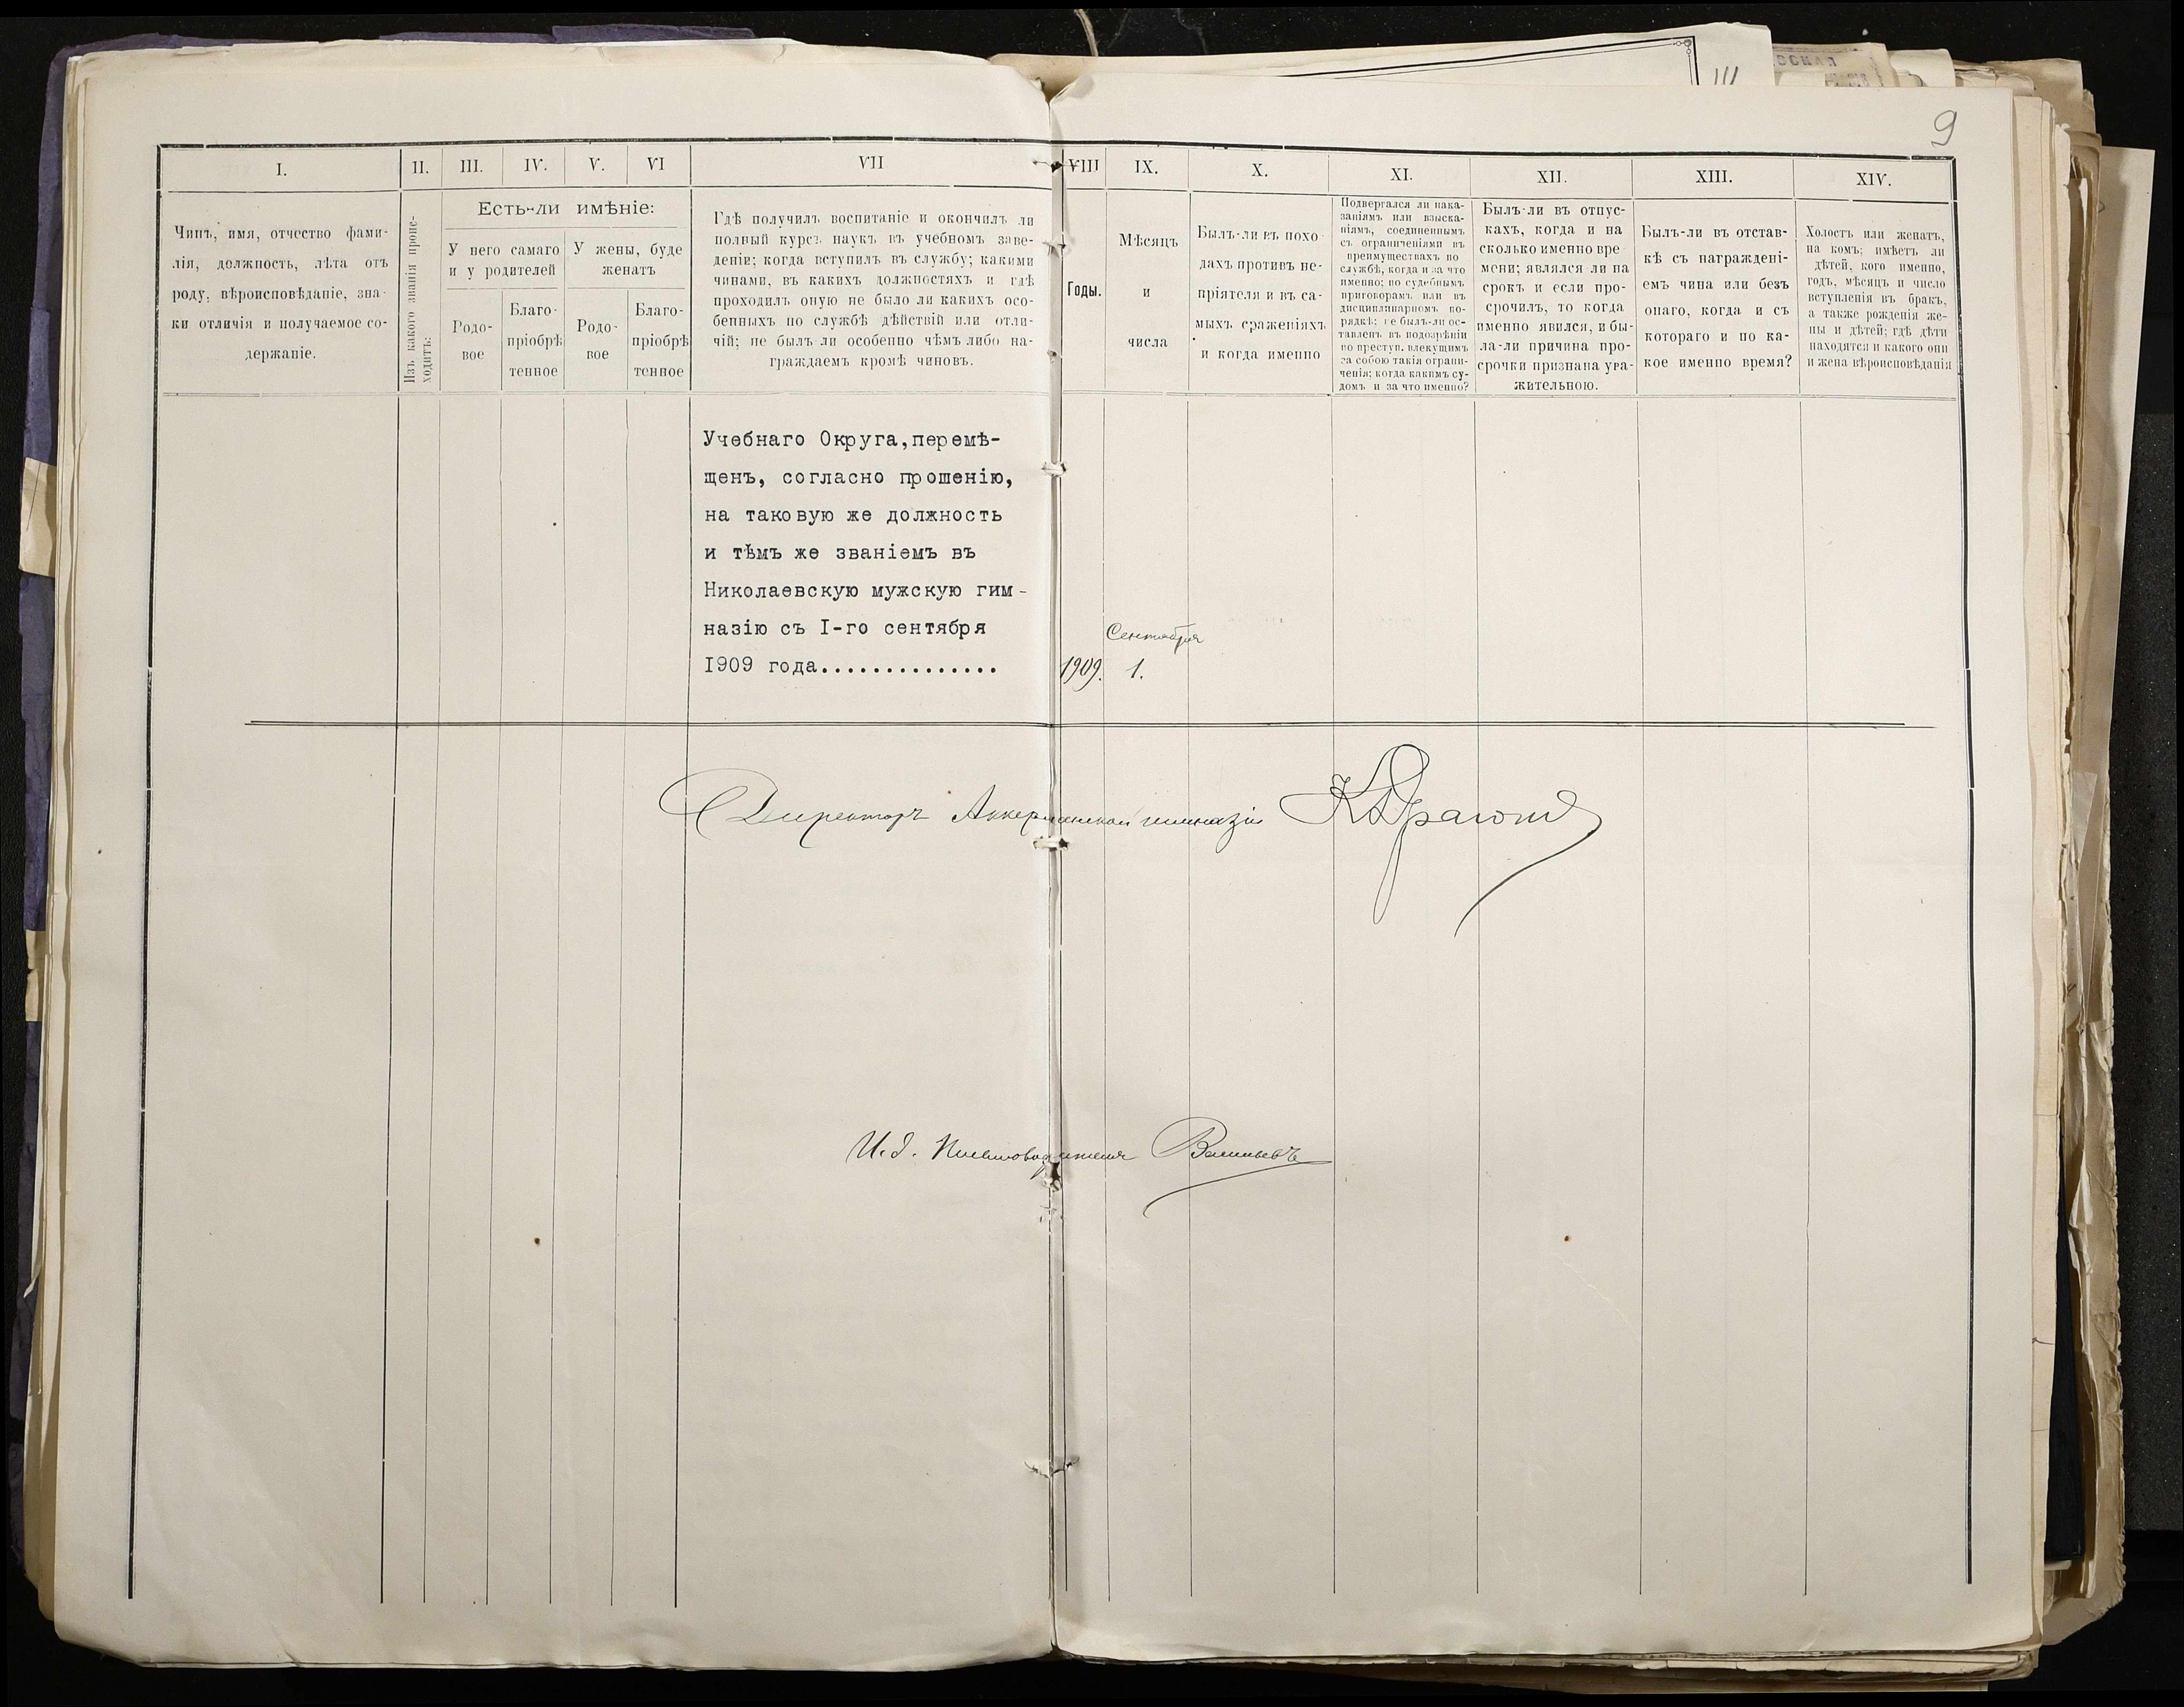 9
I.
II.
III.
IV.
V.
VI
VII
VIII
IX.
X.
XI.
XII.
XIII.
XIV.
Чинъ, имя, отчество фами-
лія, должность, лѣта отъ
роду, вѣроисповѣданіе, зна-
ки отличія и получаемое со-
держаніе.
Изъ какого званія проис-
ходитъ:
Есть-ли имѣніе:
У него самаго
и у родителей
У жены, буде
женатъ
Родо-
вое
Благо-
пріобрѣ
тенное
Родо-
вое
Благо-
пріобрѣ
тенное
Гдѣ получилъ воспитаніе и окончилъ ли
полный курсъ наукъ въ учебномъ заве-
деніи; когда вступилъ въ службу; какими
чинами, въ какихъ должностяхъ и гдѣ
проходилъ оную не было ли какихъ осо-
бенныхъ по службѣ дѣйствій или отли-
чій; не былъ ли особенно чѣмъ либо на-
граждаемъ кромѣ чиновъ.
Годы.
Мѣсяцъ
и
числа
Былъ-ли въ похо-
дахъ противъ не-
пріятеля и въ са-
мыхъ сраженіяхъ
и когда именно
Подвергался ли нака-
заніямъ или взыска-
ніямъ, соединеннымъ
съ ограниченіями въ
преимуществахъ по
службѣ, когда и за что
именно; по судебнымъ
приговорамъ или въ
дисциплинарномъ по-
рядкѣ; не былъ-ли ос-
тавленъ въ подозрѣніи
по преступ. влекущимъ
за собою такія ограни-
ченія; когда какимъ су-
домъ и за что именно?
Былъ-ли въ отпус-
кахъ, когда и на
сколько именно вре
мени; являлся ли на
срокъ и если про-
срочилъ, то когда
именно явился, и бы-
ла-ли причина про-
срочки признана ува-
жительною.
Былъ-ли въ отстав-
кѣ съ награжденi-
емъ чина или безъ
онаго, когда и съ
котораго и по ка-
кое именно время?
Холостъ или женатъ,
на комъ; имѣетъ ли
дѣтей, кого именно,
годъ, мѣсяцъ и число
вступленія въ бракъ,
а также рожденія же-
ны и дѣтей; гдѣ дѣти
находятся и какого они
и жена вѣроисповѣданія
Учебнаго Округа,перемѣ-
щенъ, согласно прошенію,
на таковую же должность
и тѣмъ же званіемъ въ
Николаевскую мужскую гим-
назію съ I-го сентября
I909 года..............
1909.
Сентября
1.
Директоръ Аккерманской гимназіи
И.д. Письмоводителя